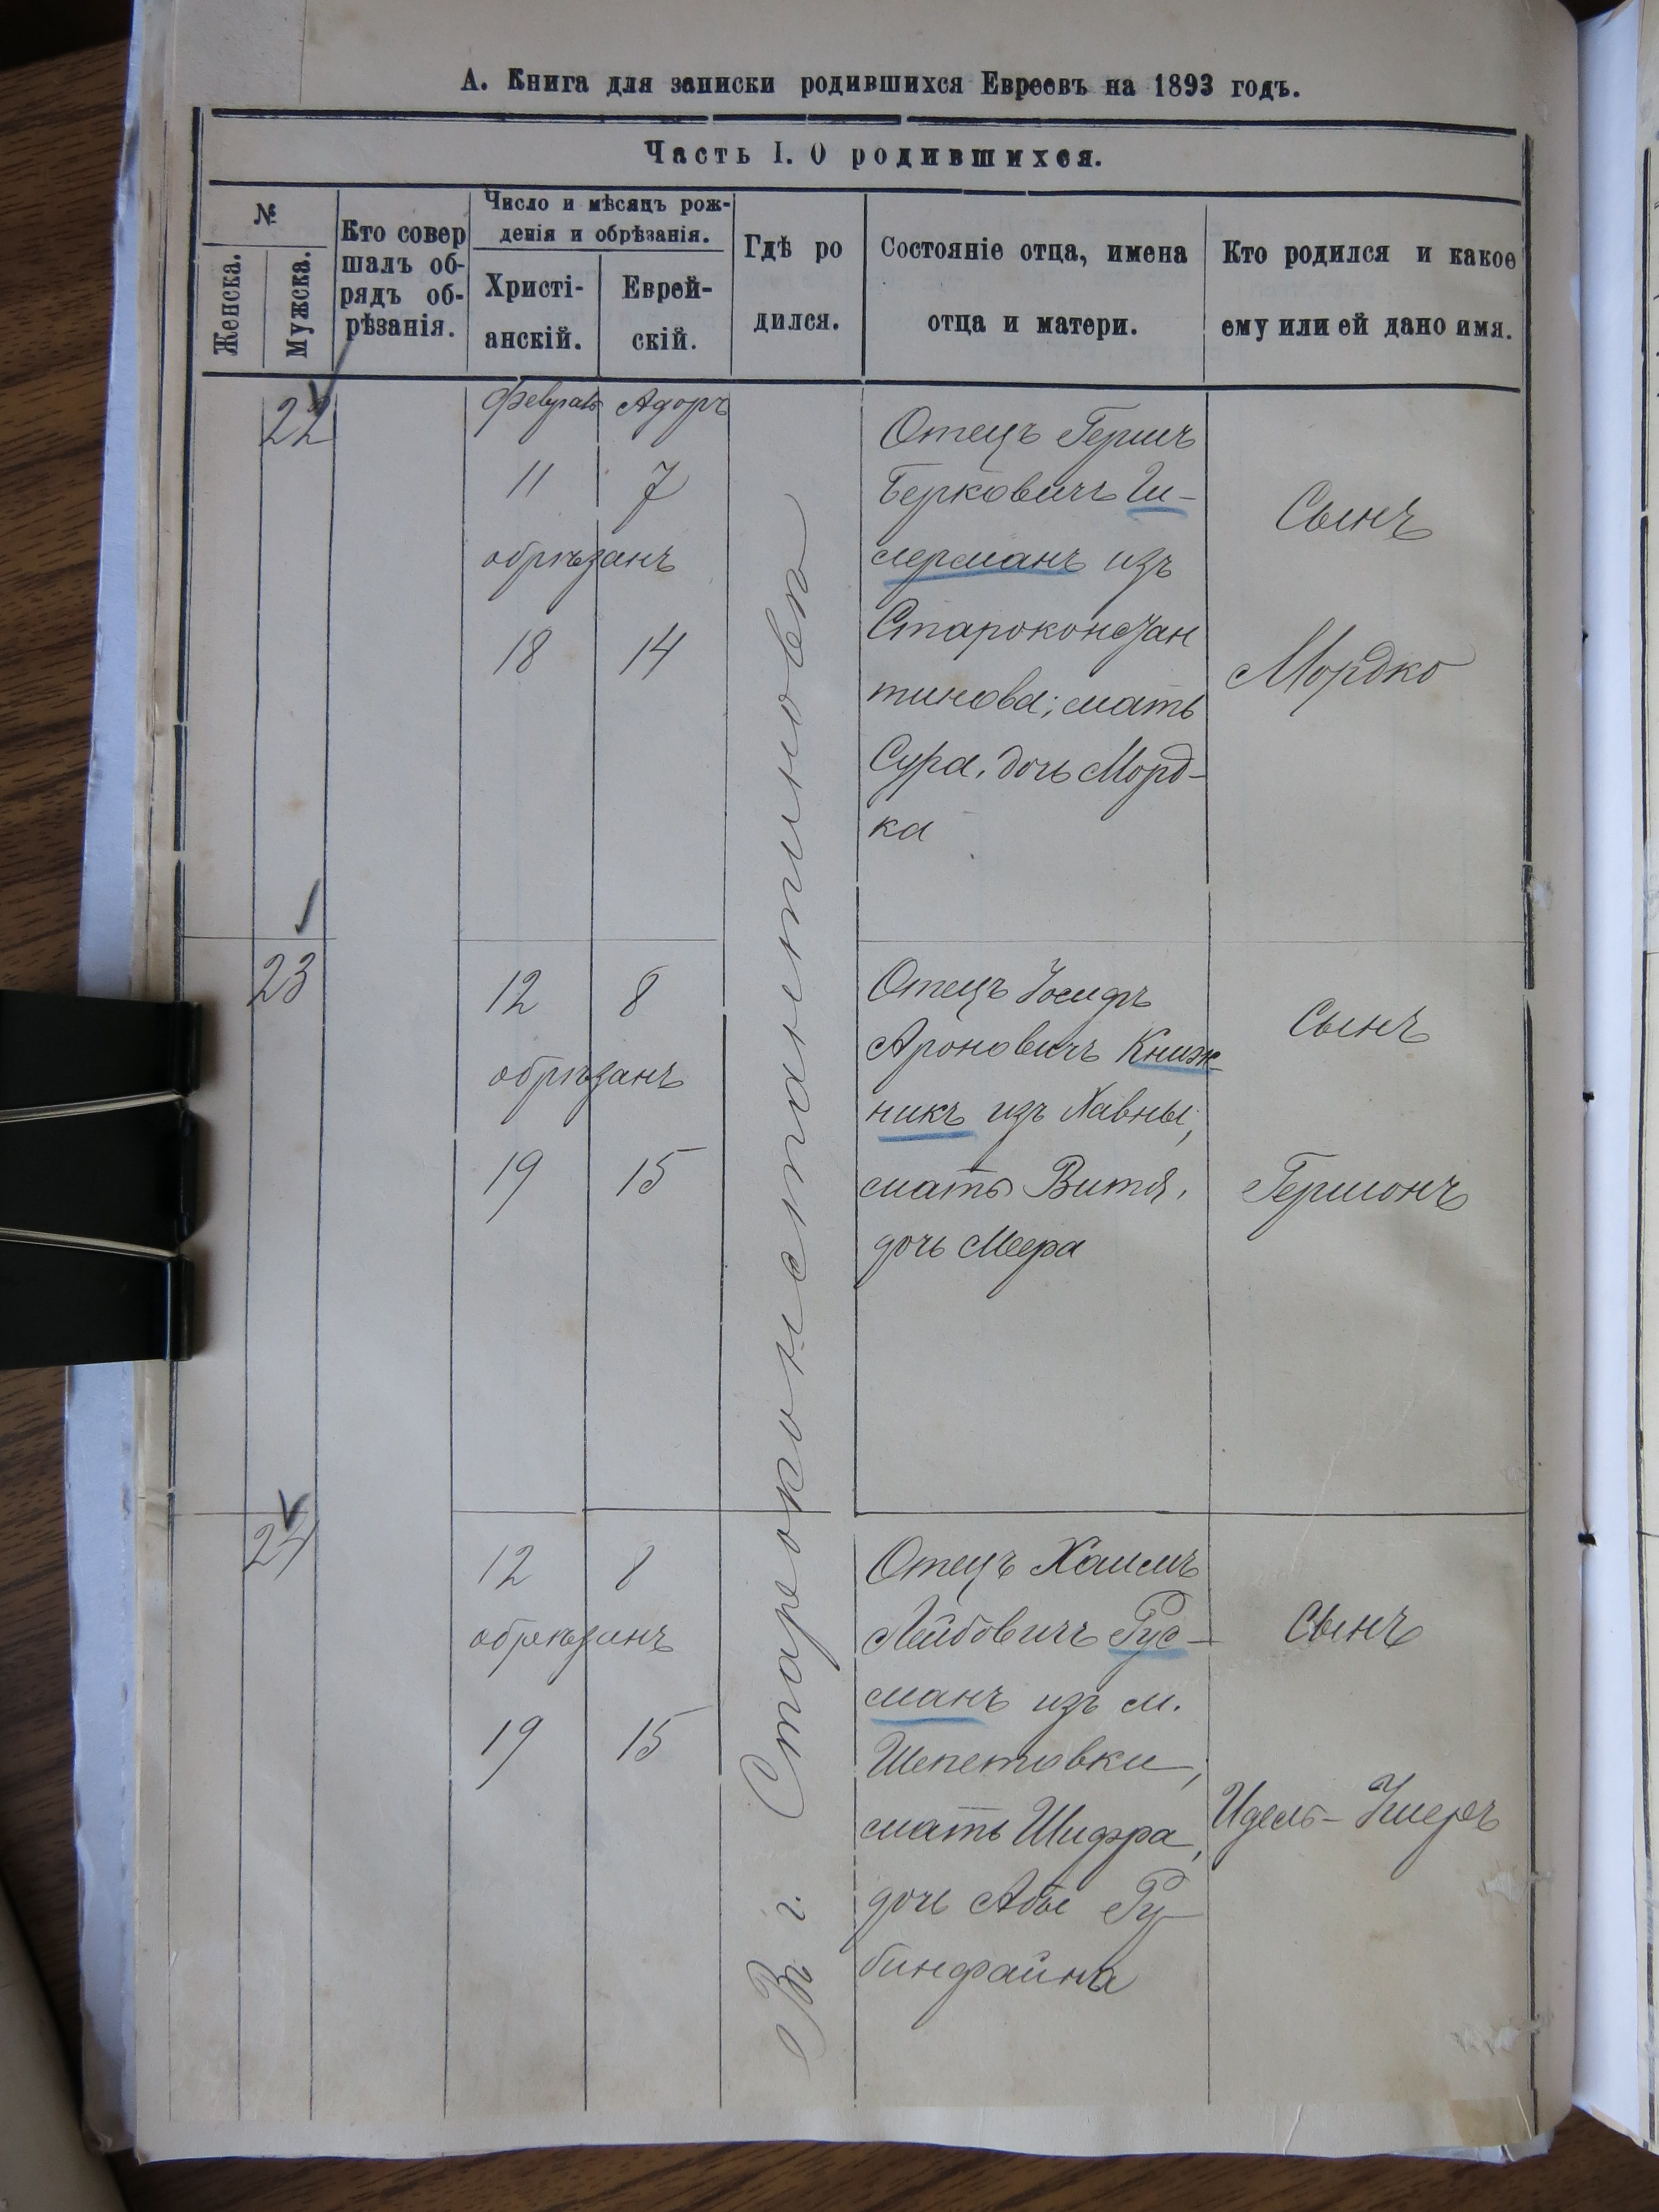 А. Книга для записки родившихся Евреевъ на 1893 годъ.
Часть I. О родившихся.
№
Женска.
Мужска.
Кто совер
шалъ об-
рядъ об-
рѣзанія.
Число и мѣсяцъ рож-
денія и обрѣзанія.
Христі-
анскій.
Еврей-
скій.
Гдѣ ро
дился.
Состояніе отца, имена
отца и матери.
Кто родился и какое
ему или ей дано имя.
22
Февраль Адоръ
11 7
обрѣзанъ
18 14
Отецъ Гершъ
Берковичъ Ци-
мерманъ изъ
Староконстан
тинова; мать
Сура, дочь Морд-
ка
Сынъ
Мордко
В г. Староконстантиновѣ
23
12 8
обрѣзанъ
19 15
Отецъ Іосифъ
Ароновичъ Книж-
никъ изъ
мать Витя,
дочь Меера
Сынъ
Гершонъ
24
12 8
обрѣзанъ
19 15
Отецъ Хаимъ
Лейбовичъ Рус-
манъ изъ м.
Шепетовки,
мать Шифра,
дочь Абы Ру-
бинфайна
Сынъ
Идель-